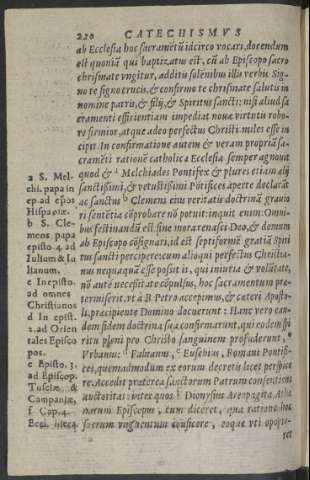 220 CATECHISMVS
ab Ecclesia hoc sacramẽtũ idcirco vocari, docendum
est quoniã qui baptizatus est, cũ ab Episcopo sacro
chrismate vngitur, additis solẽnibus illis verbis Sig-
no te signo crucis, & confirmo te chrismate salutis in
nomine patris, & filij, & Spiritus sancti: nisi aliud sa
cramenti efficientiam impediat nouæ virtutis robo-
re firmior, atque adeo perfectus Christi miles esse in
cipit. In confirmatione autem & veram propriã sa-
cramẽti rationẽ catholica Ecclesia semper agnouit
quod & a Melchiades Pontifex & plures etiam alij
sanctissimi, & vetustissimi Põtifices aperte declarãt
ac sanctus b Clemens eius veritatis doctrinã grauio
ri sentẽtia cõprobare nõ potuit: inquit enim: Omni-
bus festinandũ est sine mora renasci Deo, & demum
ab Episcopo cõsignari, id est septiformẽ gratiã Spiri
tus sancti percipere: cum alioqui perfectus Christia-
nus nequaquã esse possit is, qui iniuria & volũtate,
nõ autẽ necessitate cõpulsus, hoc sacramentum præ-
termiserit. vt à B. Petro accepimus, & cæteri Aposto-
li, præcipiente Domino docuerunt: Hanc vero ean-
dem fidem doctrina sua confirmarunt, qui eodem spi
ritu pleni pro Christo sanguinem profuderunt, c
Vrbanus: d Fabianus, e Eusebius, Romani Pontifi-
ces, quemadmodum ex eorum decretis licet perspice
re. Accedit præterea sanctorum Patrum consentiens
auctoritas: inter quos f Dionysius Areopagita Athe
narum Episcopus, cum diceret, qua ratione hoc
sacrum vnguentum conficere, eoque vti oporte-
ret
a S. Mel-
chi. papa in
ep. ad epos
Hispaniæ.
b S. Cle-
mens papa
episto. 4. ad
Iulium & Iu
lianum.
c In episto.
ad omnes
Christianos
d In epist.
2. ad Orien
tales Episco
pos.
e Episto. 3.
ad Episcop.
Tusciæ &
Campaniæ,
f Cap. 4.
Eccl.